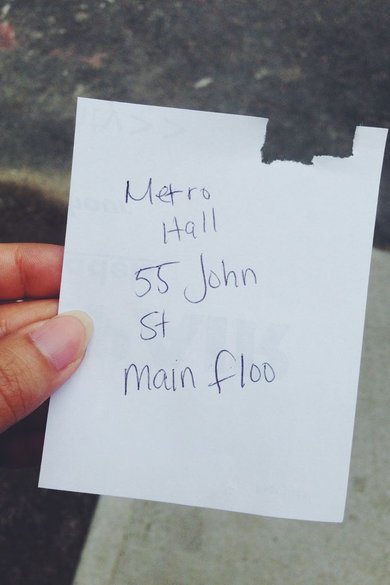 Metro
Hall
55 John
St
Main floo